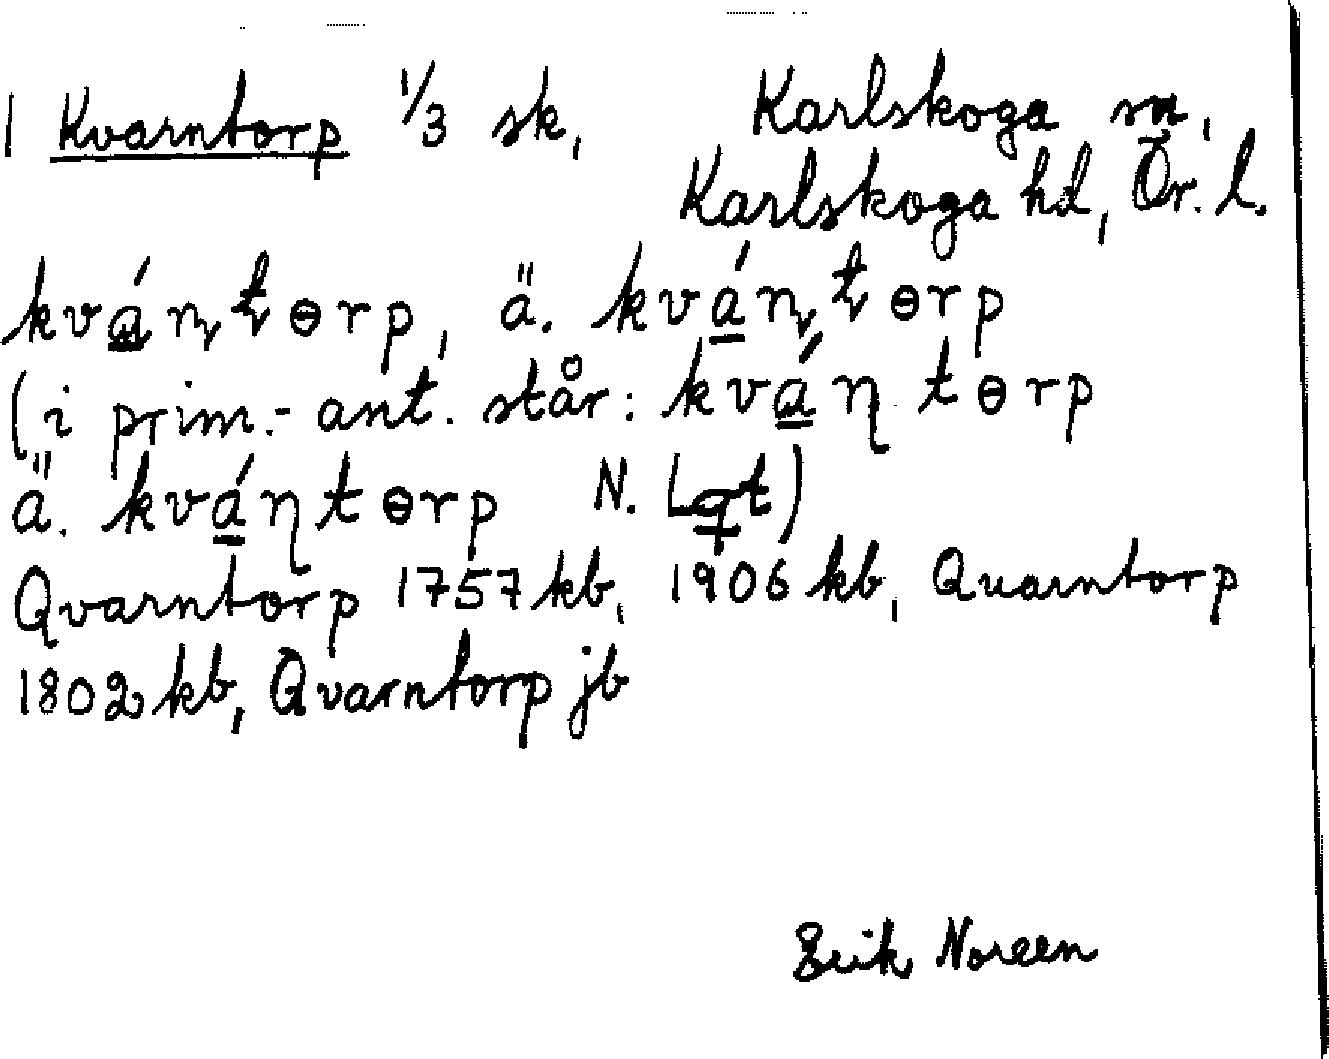 1 Kvarntorp 1/3 sk, Karlskoga sn,
Karlskoga hd, Ör. l.
kvá̱ɳʈɵrp, ä. kvá̱ɳʈɵrp
(i prim.-ant. står: kvá̱ɳtɵrp
ä. kvá̱ɳtɵrp N. Lgt)
Qvarntorp 1757 kb, 1906 kb, Quarntorp
1802 kb, Qvarntorp jb
Erik Noreen